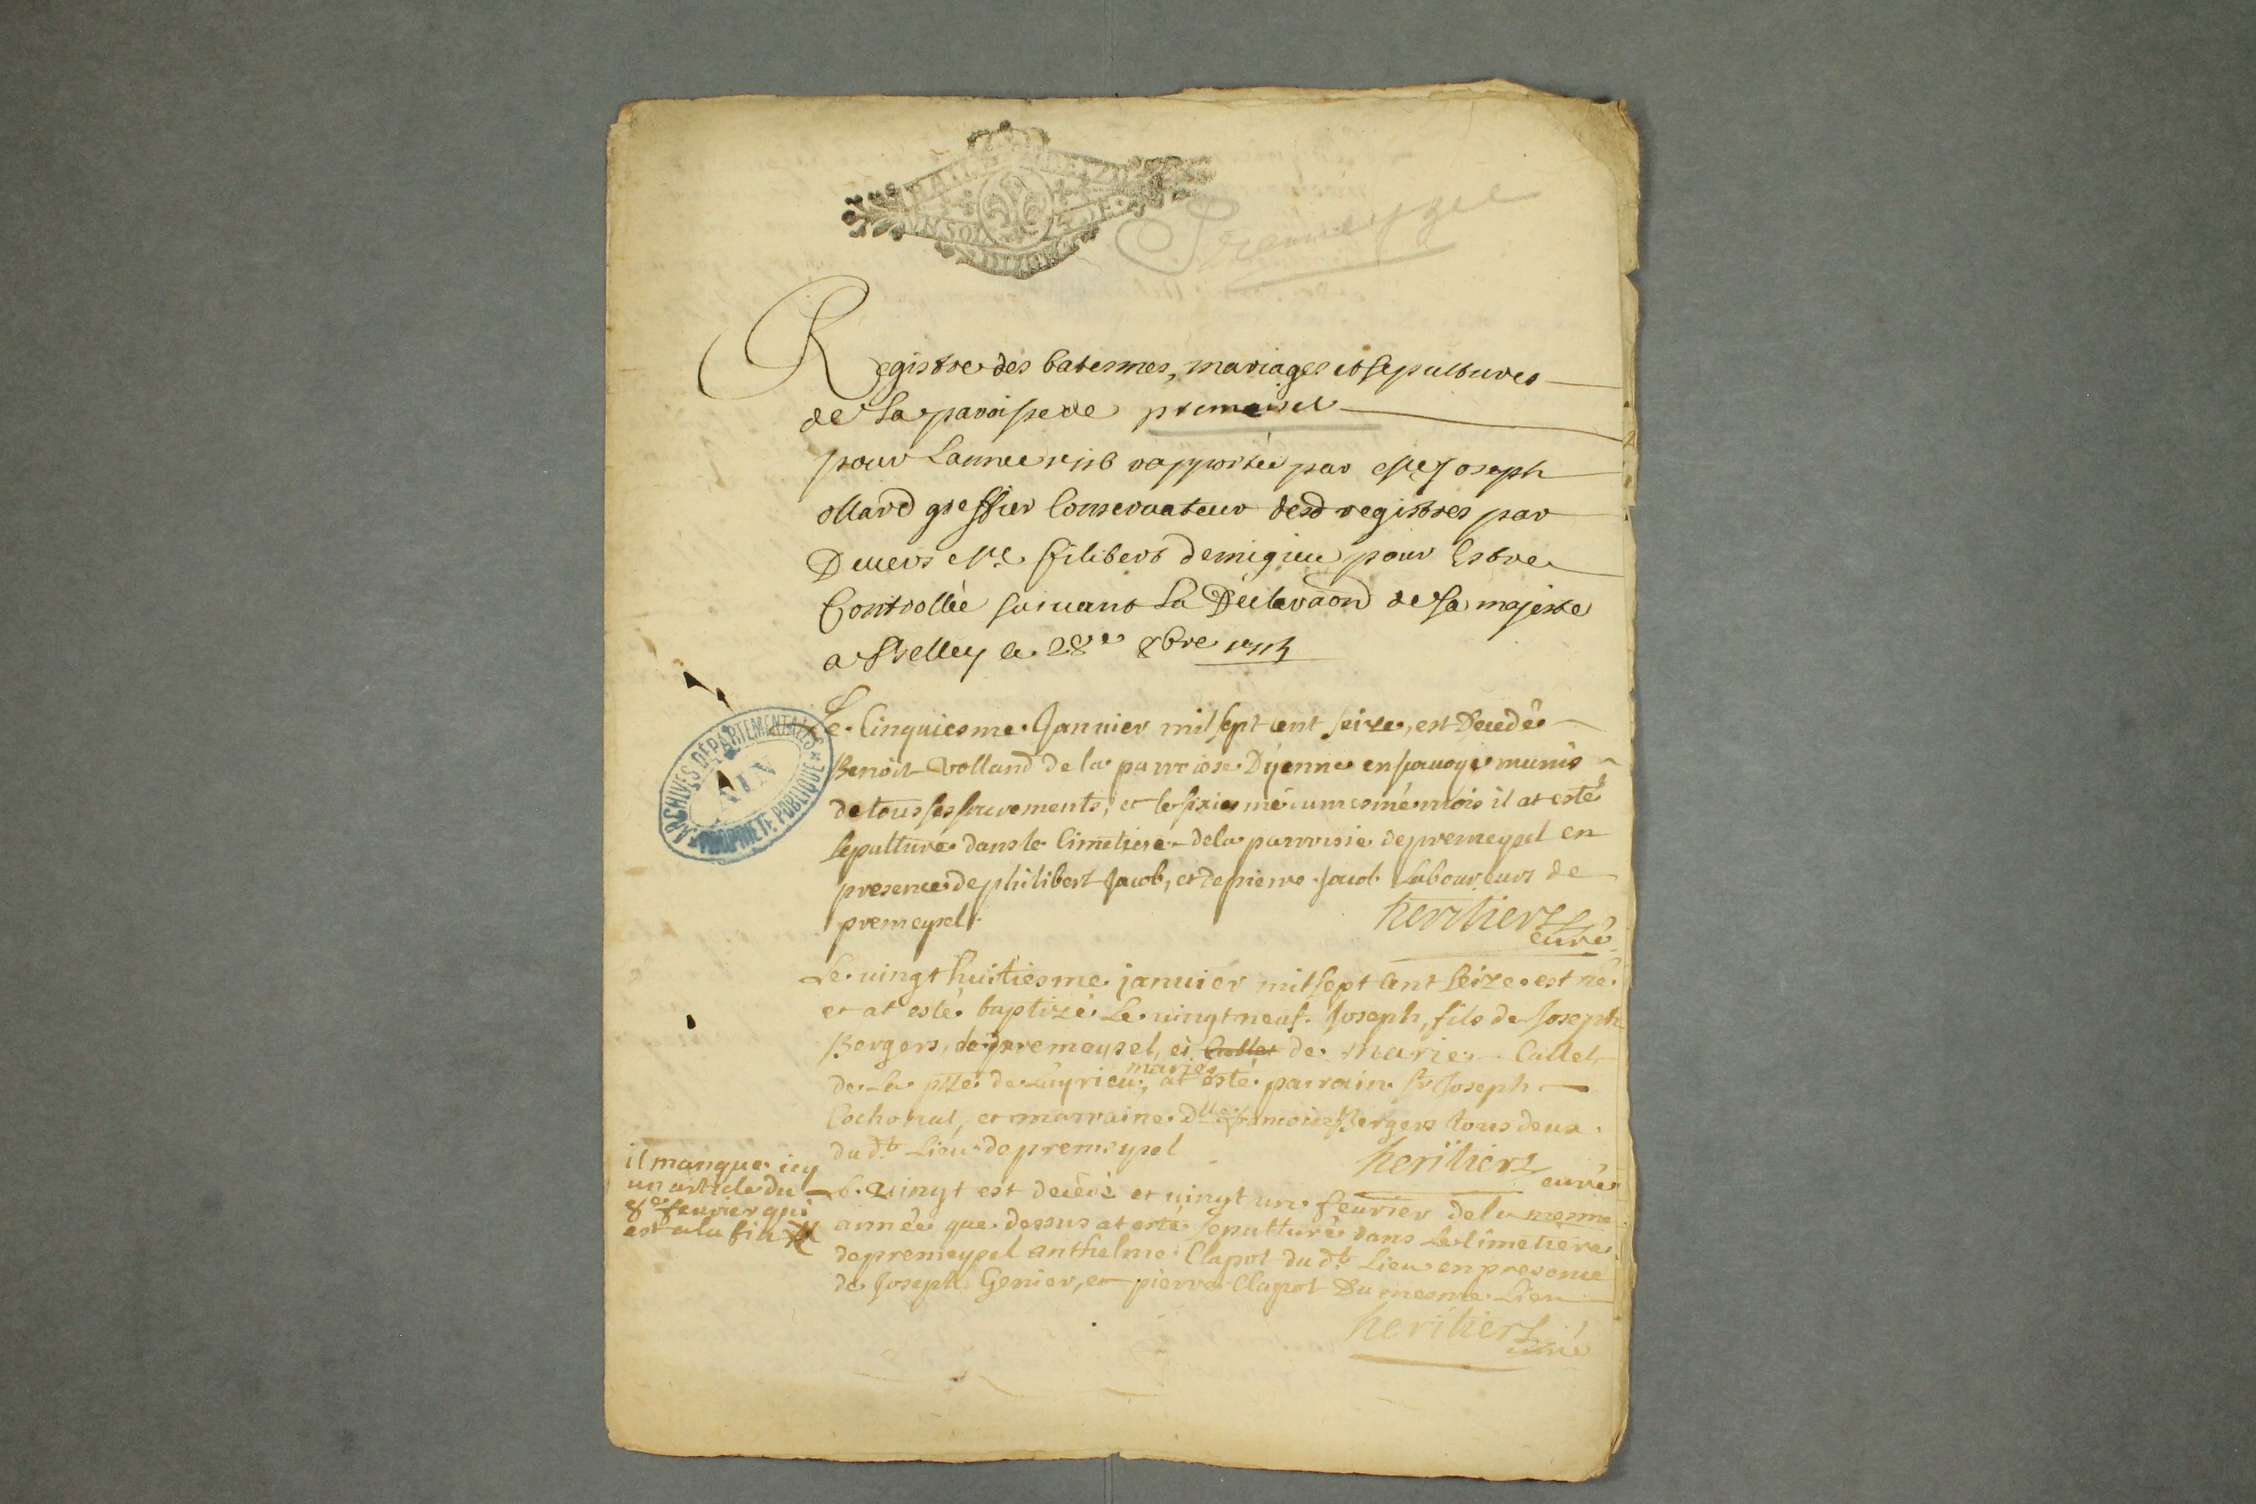 Premeyzel
Registre des batesmes, mariages et sepultures
de La paroisse de premeisel
pour Lannee 1716 rapportée par Me Joseph
ollard greffier Conservateur desd registres par
Devers Me filibert demigieu pour Estre
Controllée suivant La Declaraôn de sa majeste
a Belley le 28e 8bre 1715
Le Cinquiesme Januier mil sept cent seize, est decedé
Benoit Volland de la parroise Dyenne en sauoye munis
de tous ses sacrements, et le sixiesme du mesme mois il at esté
sepulturé dans le Cimetiere de la parroisse de premeysel en
presence de philibert Jacob, et de pierre Jacob Laboureurs de
premeysel
heritier
curé
Le uingt huitiesme januier mil sept Cent Seize est né
et at esté baptizé Le uingt neuf Joseph, fils de Joseph
Bergers, de premeysel, et de Marie Callet
de La psse de Luyrieu, mariés at esté parrain sr Joseph
Cochonat, et marraine dlle francoise Bergers tous deux
du dt Lieu de premeysel
heritier
curé
il manque icy
un article du
8e feurier qui
est a la fin
Le uingt est decedé et uingt un feurier de la mesme
année que dessus at esté sepulturé dans Le Cimetiere
de premeysel anthelme Clapot du dt Lieu en presence
de Joseph Genier, et pierre Clapot Du mesme Lieu
heritier
curé
ARCHIVES DÉPARTEMENTALES
AIN
PROPRIÉTÉ PUBLIQUE